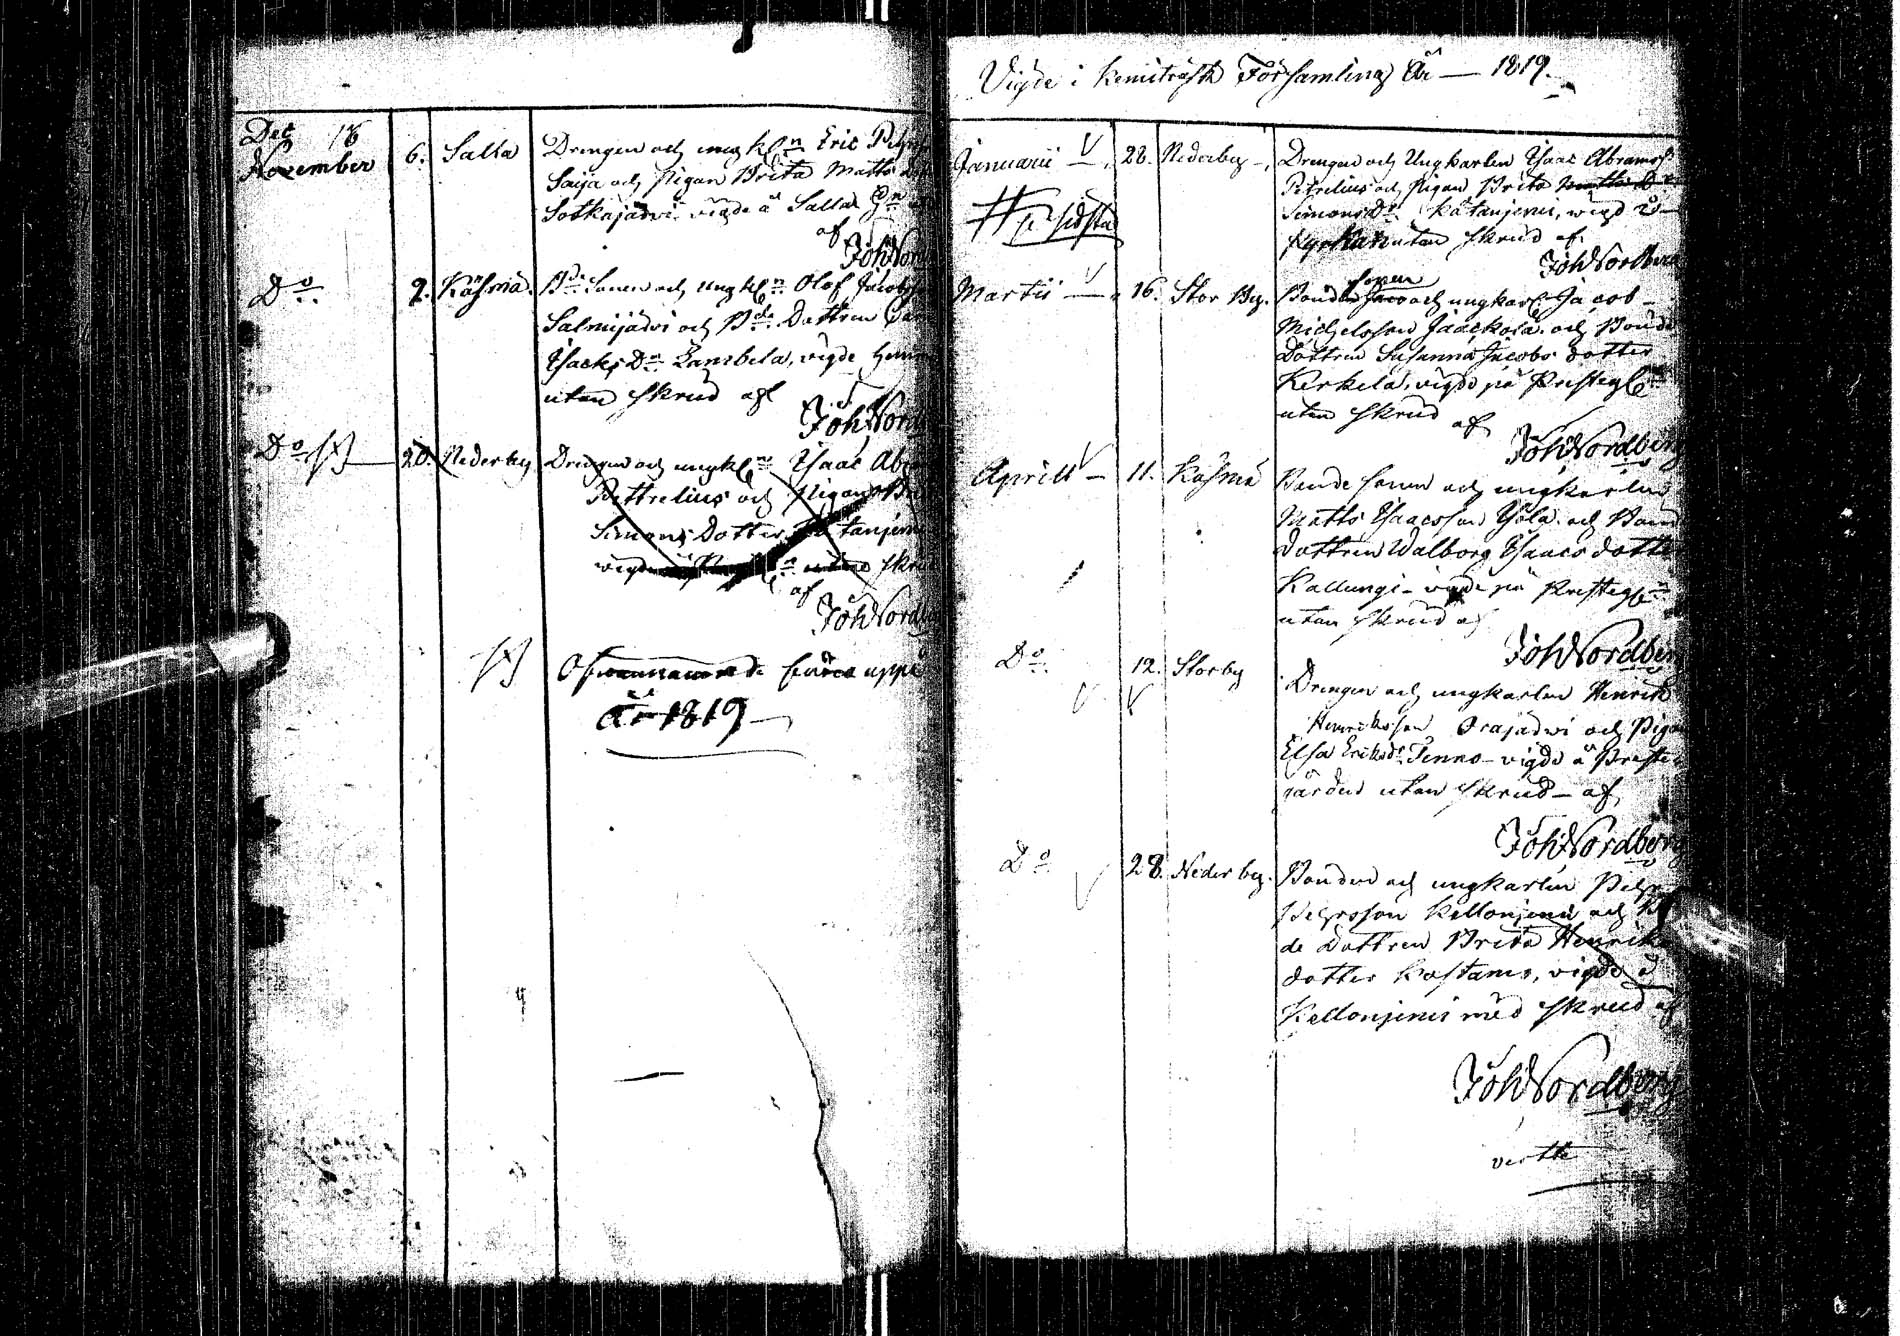 Dec 18
November 6. Salla Drengen och ungkln Eric Pehrss
Saija och pigan Brita Matts Dott
Sotkajärvi vigde å Salla
af
Joh Nord
Do 9. Käsmä. Bde Sonen och ungkln Olof Jacobss
Salmijärvi och Bde Dottren Car
Ysacks Dr Lambela, vigde hemma
utan skrud af
Joh Nord
Do 20. Nederby Drengen och ungkln Ysaac Abra
Pettrelius och Pigan Bri
Simons Dotter Kåtanjemi
vigde utan skrud
af
Joh Nordb
Ofvannamnde föres uppå
År 1819
Vigde i Kemiträsk Församling År 1819.
Januarii 28. Nederby Drengen och Ungkarlen Ysaac Abramss
Petrelius och pigan Brita Matts Dr
Simons Dr Kåtanjemi, vigd i
kyrkan utan skrud af
Joh Nordberg
sidsta
Martii 16. Stor By. Bonde sonen och ungkarl Jacob
Michelsson Jaackola och Bonde
Dottren Susanna Jacobs dotter
Kerkela, vigde på Prestegln
utan skrud af
Joh Nordberg
Aprill 11. Käsmä Bonde sonen och ungkarlen
Matts Ysaacsson Yläla och Bonde
dottren Walborg Ysaacs dotter
Kallungi vigde på Prestegln
utan skrud af
Joh Nordberg
Do 12. Storby
Drengen och ungkarlen Henrik
Henriksson Orajärvi och Pigan
Elsa Eriksdr Tenno vigde å Preste
gården utan skrud af
Joh Nordberg
Do 28. Nederby. Bonden och ungkarlen Pehr
Pehrsson Kellonjemi och Bon
de Dottren Brita Henriks
dotter Kostamo, vigde å
Kellonjemi med skrud af
Joh Nordberg
vertte